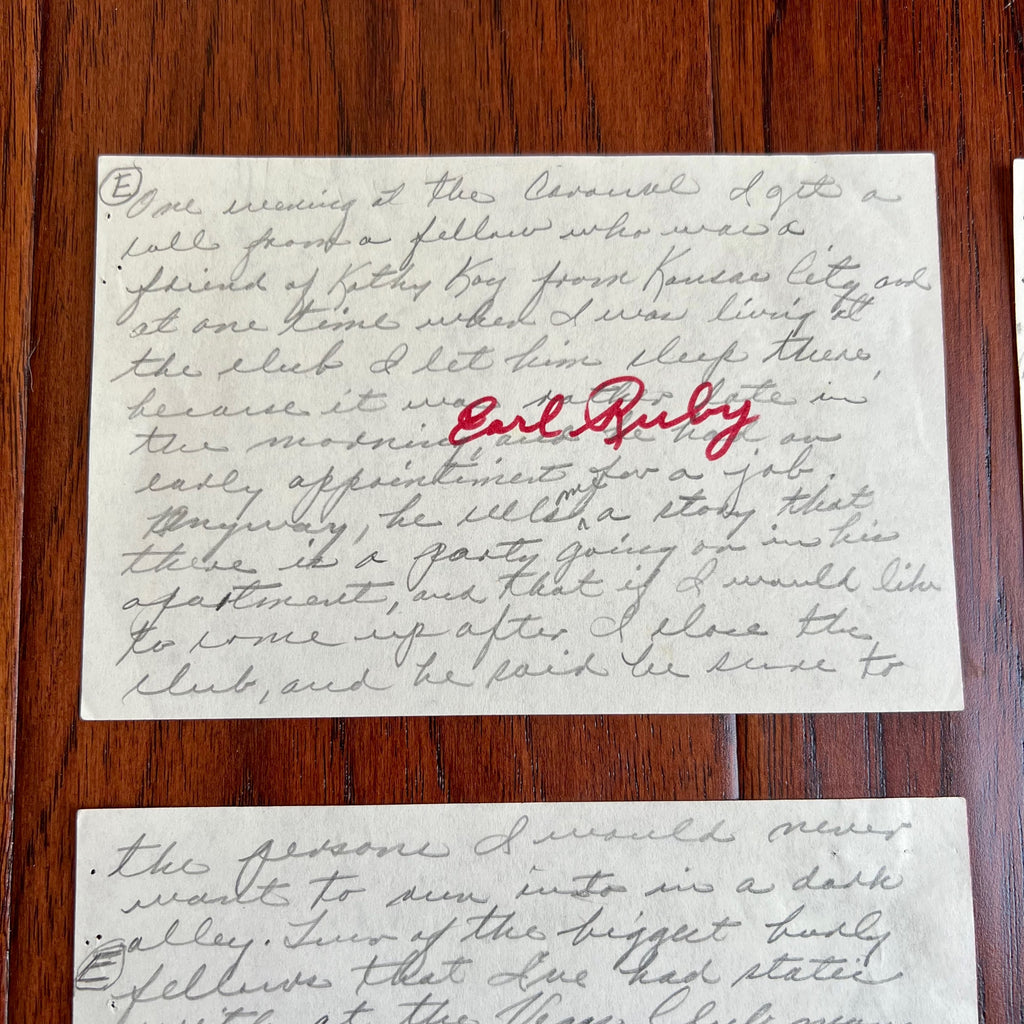 E
One evening at the Carousel I get a
call from a fellow who was a
friend of Kathy Kay from Kansas City and
at one time when I was living at
the club I let him sleep there,
because it was rather late in
Earl Ruby
the morning, and he had an
early appointment for a job.
Anyway, he tells me a story that
there is a party going on in his
apartment, and that if I would like
to come up after I close the
club, and he said be sure to
the persons I would never
want to run into in a dark
alley. Two of the biggest burly
E
fellows that I've had static
with at the Vegas Club